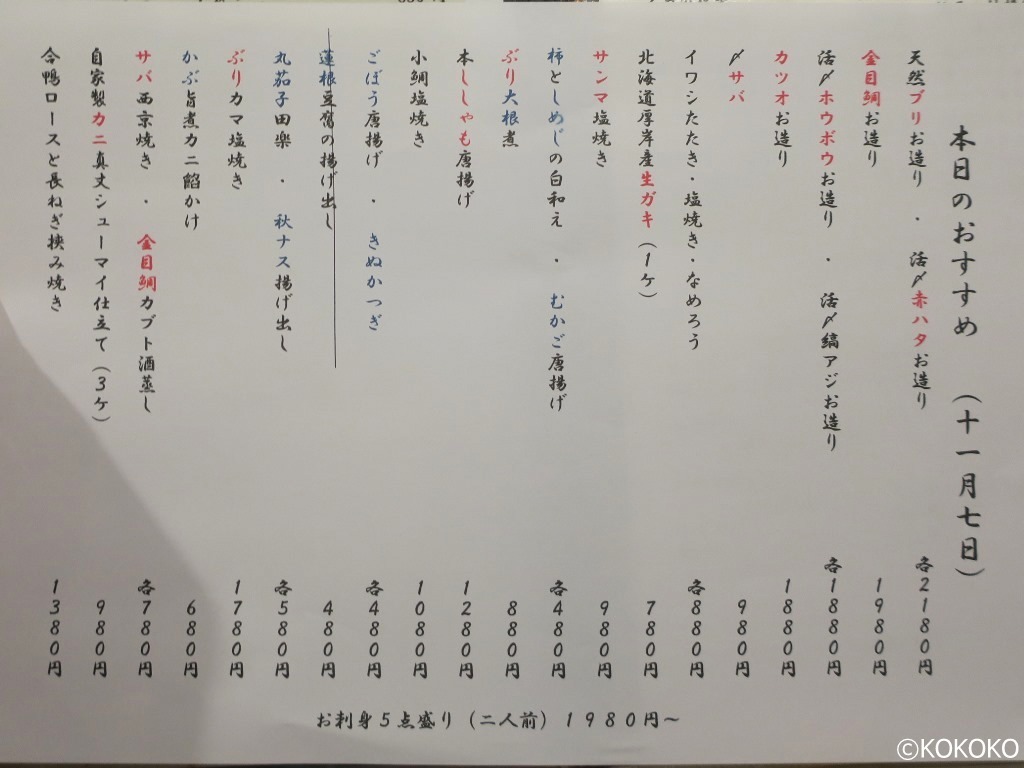 本日のおすすめ （十一月七日）
天然ブリお造り ・ 活〆赤ハタお造り 各2180円
金目鯛お造り 1980円
活〆ホウボウお造り ・ 活〆縞アジお造り 各1880円
カツオお造り 1880円
〆サバ 980円
イワシたたき・塩焼き・なめろう 各880円
北海道厚岸産生ガキ（1ケ） 780円
サンマ塩焼き 980円
柿としめじの白和え ・ むかご唐揚げ 各480円
ぶり大根煮 880円
本ししゃも唐揚げ 1280円
小鯛塩焼き 1080円
ごぼう唐揚げ ・ きぬかつぎ 各480円
蓮根豆腐の揚げ出し 480円
丸茄子田楽 ・ 秋ナス揚げ出し 各580円
ぶりカマ塩焼き 1780円
かぶ旨煮カニ餡かけ 680円
サバ西京焼き ・ 金目鯛カブト酒蒸し 各780円
自家製カニ真丈シューマイ仕立て（3ケ） 980円
合鴨ロースと長ねぎ挟み焼き 1380円
お刺身5点盛り（二人前）1980円～
©KOKOKO